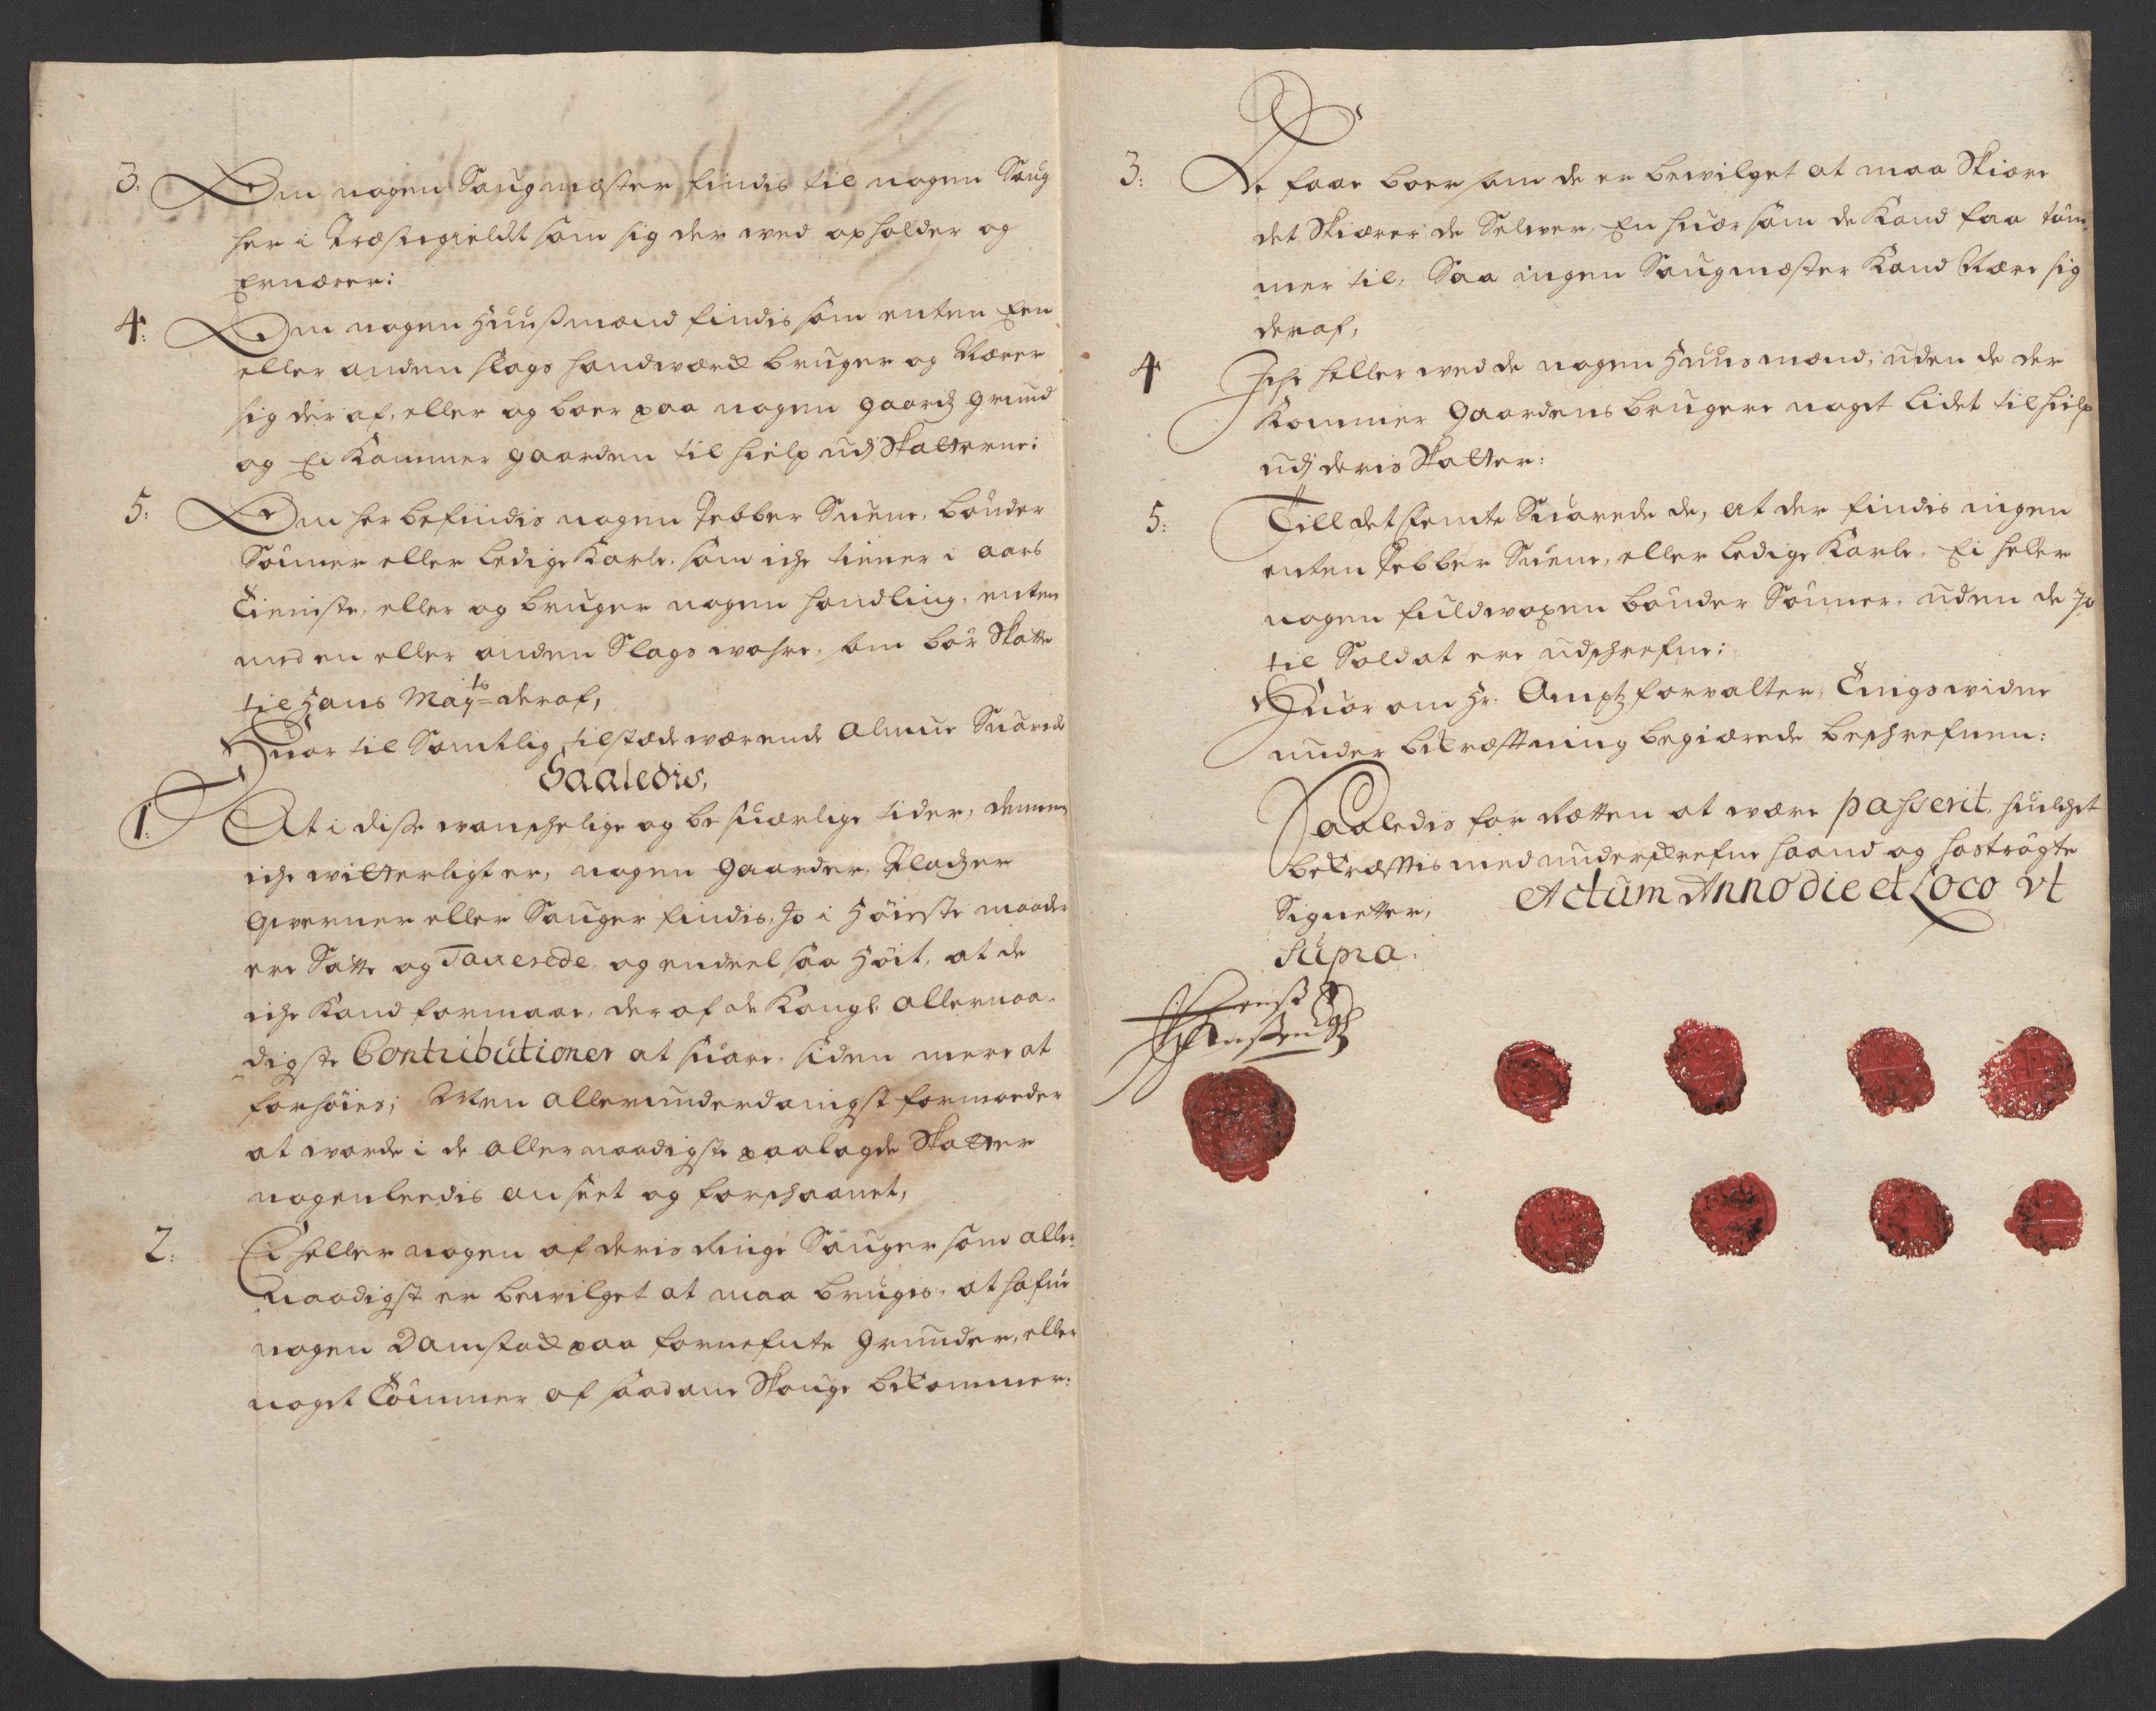 3: Om nogen Saugmæster findis til nogen Saug
her i Præstegieldet som sig der ved opholder og
Ernærer:
4: Om nogen Huusmænd findis som enten Een
eller anden slags handværck bruger og Nærer
sig der af, eller og boer paa nogen gaards grund
og Ei kommer gaarden til hielp udj Skatterne:
5: Om her befindis nogen Pebber Suene, bønder
Sønner eller ledige Karle, som iche tiener i aars
Tieniste, eller og bruger nogen handling, enten
med en eller anden Slags wahre, som bør Skatte
til Hans Mayts deraf,
Huor til Samtlig tilstædeværende Almue Suarede
Saaledis,
1: At i disse vanschelige og besuærlige tider, dennem
iche witterligt er, nogen gaarder, Pladzer
Qverner eller Sauger findis, Jo i Høieste maader
ere Satte og Taxerede, og endeel saa Høit, at de
iche kand formaae, der af de Kongl: Allernaa-
digste Contributioner at suare, siden mere at
forhøies; Men allerunderdanigst formoeder
at worde i de allernaadigste paalagde Skatter
nogenleedis anseet og forschaanet,
2: Ei heller nogen af deris ringe Sauger som aller-
naadigst er bewilget at maa brugis, at hafue
nogen Damstock paa fornefnte grunder, eller
noget Tømmer af saadane Skouge bekommer:
3: De faae boer som de er bewilget at maa Skiære
det Skiærer de Selver, En huer som de Kand faa tøm-
mer til, Saa ingen Saugmæster Kand Nære sig
deraf,
4 Iche heller ved de nogen Huusmænd, uden de der
Kommer Gaardens brugere noget lidet til hielp
udj deris Skatter:
5: Till det femte Suarede de, at der findis ingen
enten Pebber Suene, eller ledige Karle, Ei heller
nogen fuldvoxen bønder Sønner, uden de Jo
til Soldat ere udschrefne:
Huor om Hr: Amptz forvalter Tingswidne
under bekræftning begiærede beschrefuen:
Saaledis for Rætten at være passerit, huilchet
bekræftis med underschrefne haand og hostrøgte
Signetter, Actum Anno die et Loco ut
supra.